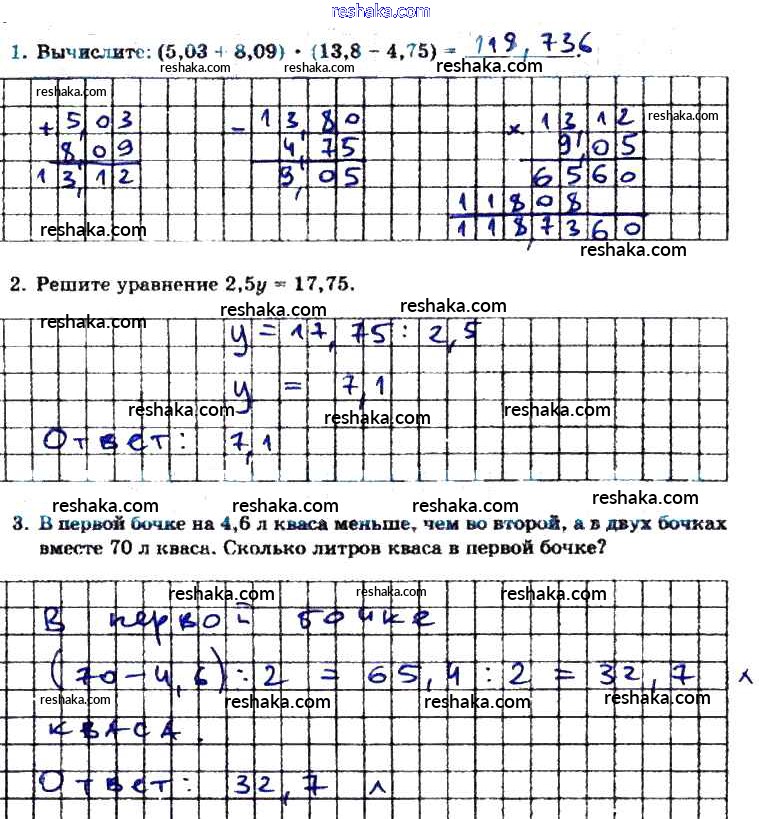 reshaka.com
1. Вычислите: (5,03 + 8,09) · (13,8 − 4,75) = 118,736.
reshaka.com reshaka.com reshaka.com
+ 5,03 − 13,80 × 13,12 reshaka.com
8,09 4,75 9,05
13,12 9,05 6560
11808
reshaka.com 118,7360
reshaka.com
2. Решите уравнение 2,5y = 17,75.
reshaka.com reshaka.com
reshaka.com y = 17,75 : 2,5
y = 7,1
reshaka.com reshaka.com reshaka.com
Ответ: 7,1
reshaka.com reshaka.com reshaka.com
3. В первой бочке на 4,6 л кваса меньше, чем во второй, а в двух бочках
вместе 70 л кваса. Сколько литров кваса в первой бочке?
reshaka.com reshaka.com reshaka.com
В первой бочке
(70 − 4,6) : 2 = 65,4 : 2 = 32,7 л
reshaka.com reshaka.com reshaka.com reshaka.com
кваса.
Ответ: 32,7 л